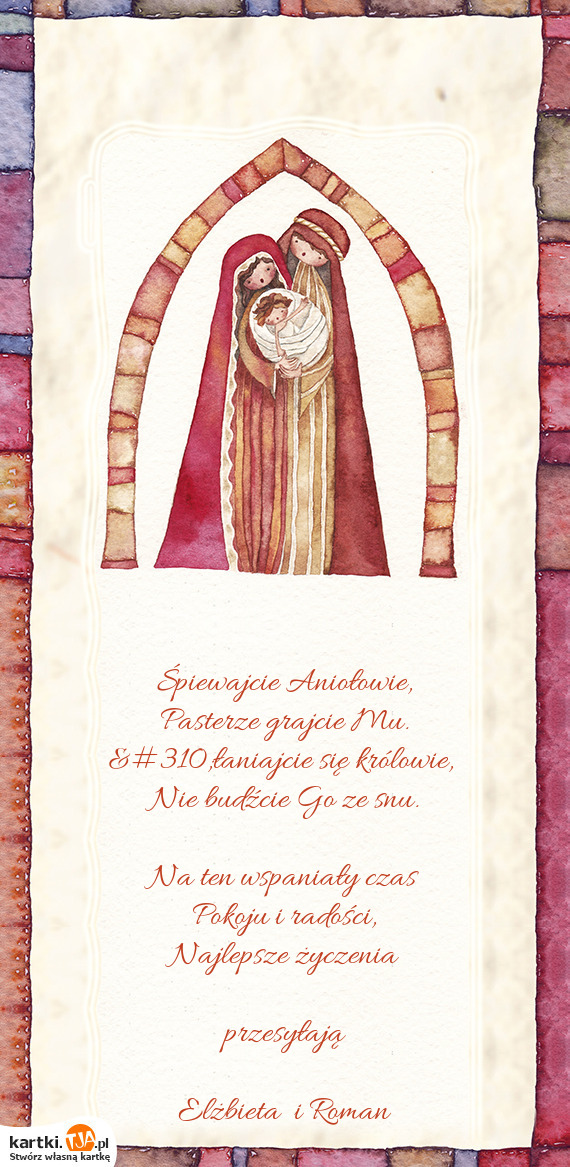 Śpiewajcie Aniołowie,
Pasterze grajcie Mu.
&#310;łaniajcie się królowie,
Nie budźcie Go ze snu.
Na ten wspaniały czas
Pokoju i radości,
Najlepsze życzenia
przesyłają
Elżbieta i Roman
kartki.TJA.pl
Stwórz własną kartkę